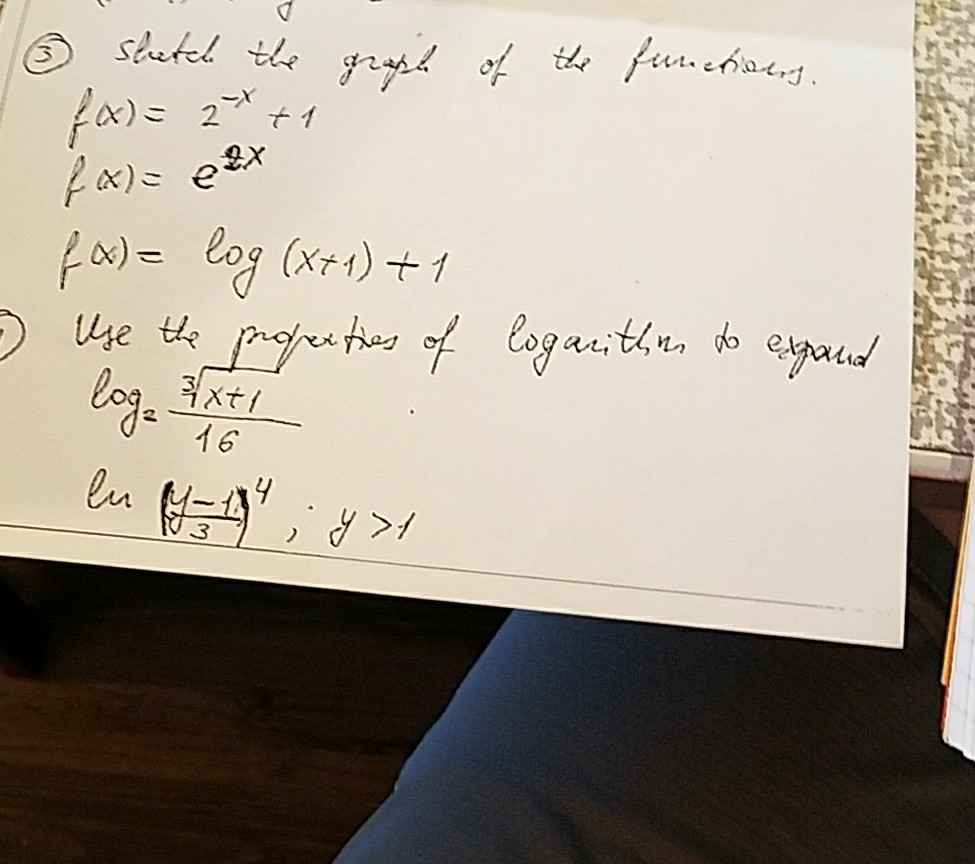 ③ Sketch the graph of the functions.
f(x) = 2^-x + 1
f(x) = e^2x
f(x) = log (x+1) + 1
Use the properties of logarithm to expand
log₂ ∛x+1 / 16
ln (y-1 / 3)^4 ; y > 1